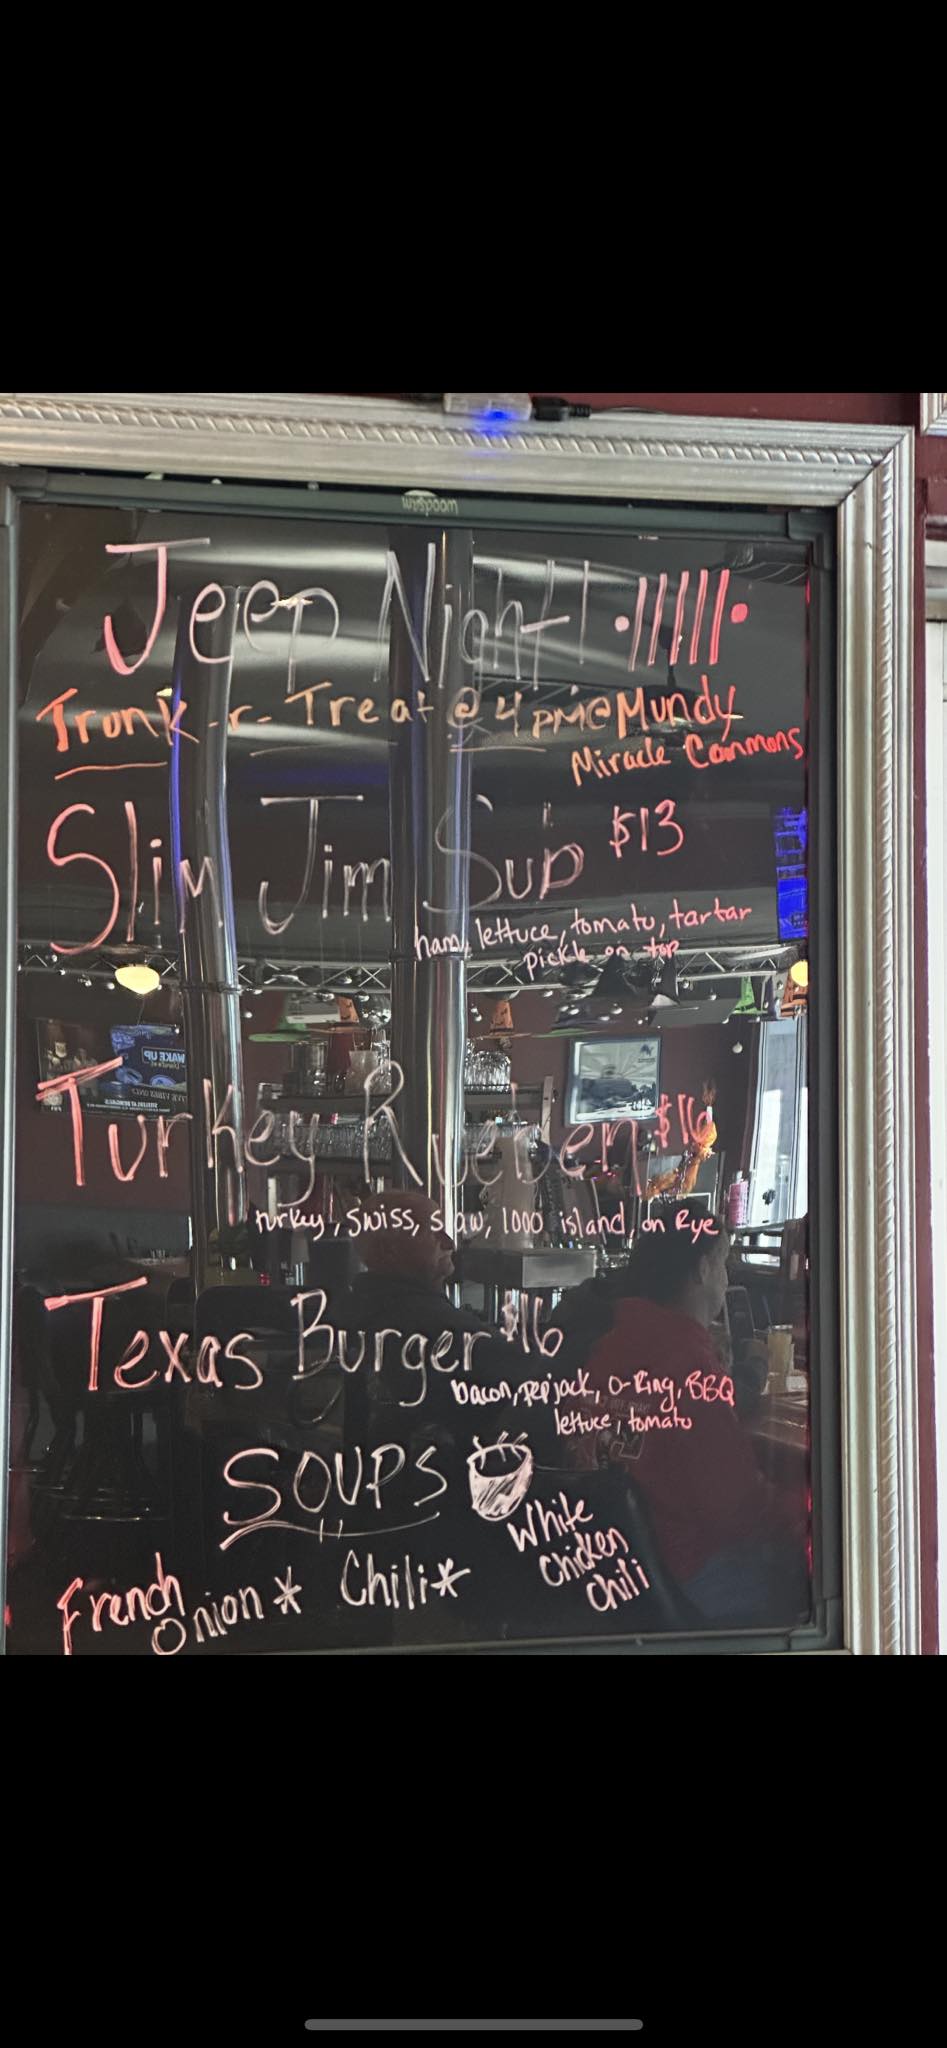 woodsam
Jeep Night!
Trunk-r-Treat @ 4 PM @ Mundy
Miracle Commons
Slim Jim Sub $13
ham, lettuce, tomato, tartar
pickle on top
WAKE UP
Turkey Rueben $16
turkey, swiss, slaw, 1000 island, on Rye
Texas Burger $16
bacon, pepjack, O-Ring, BBQ
lettuce, tomato
SOUPS
French Onion* Chili*
White
Chicken
Chili